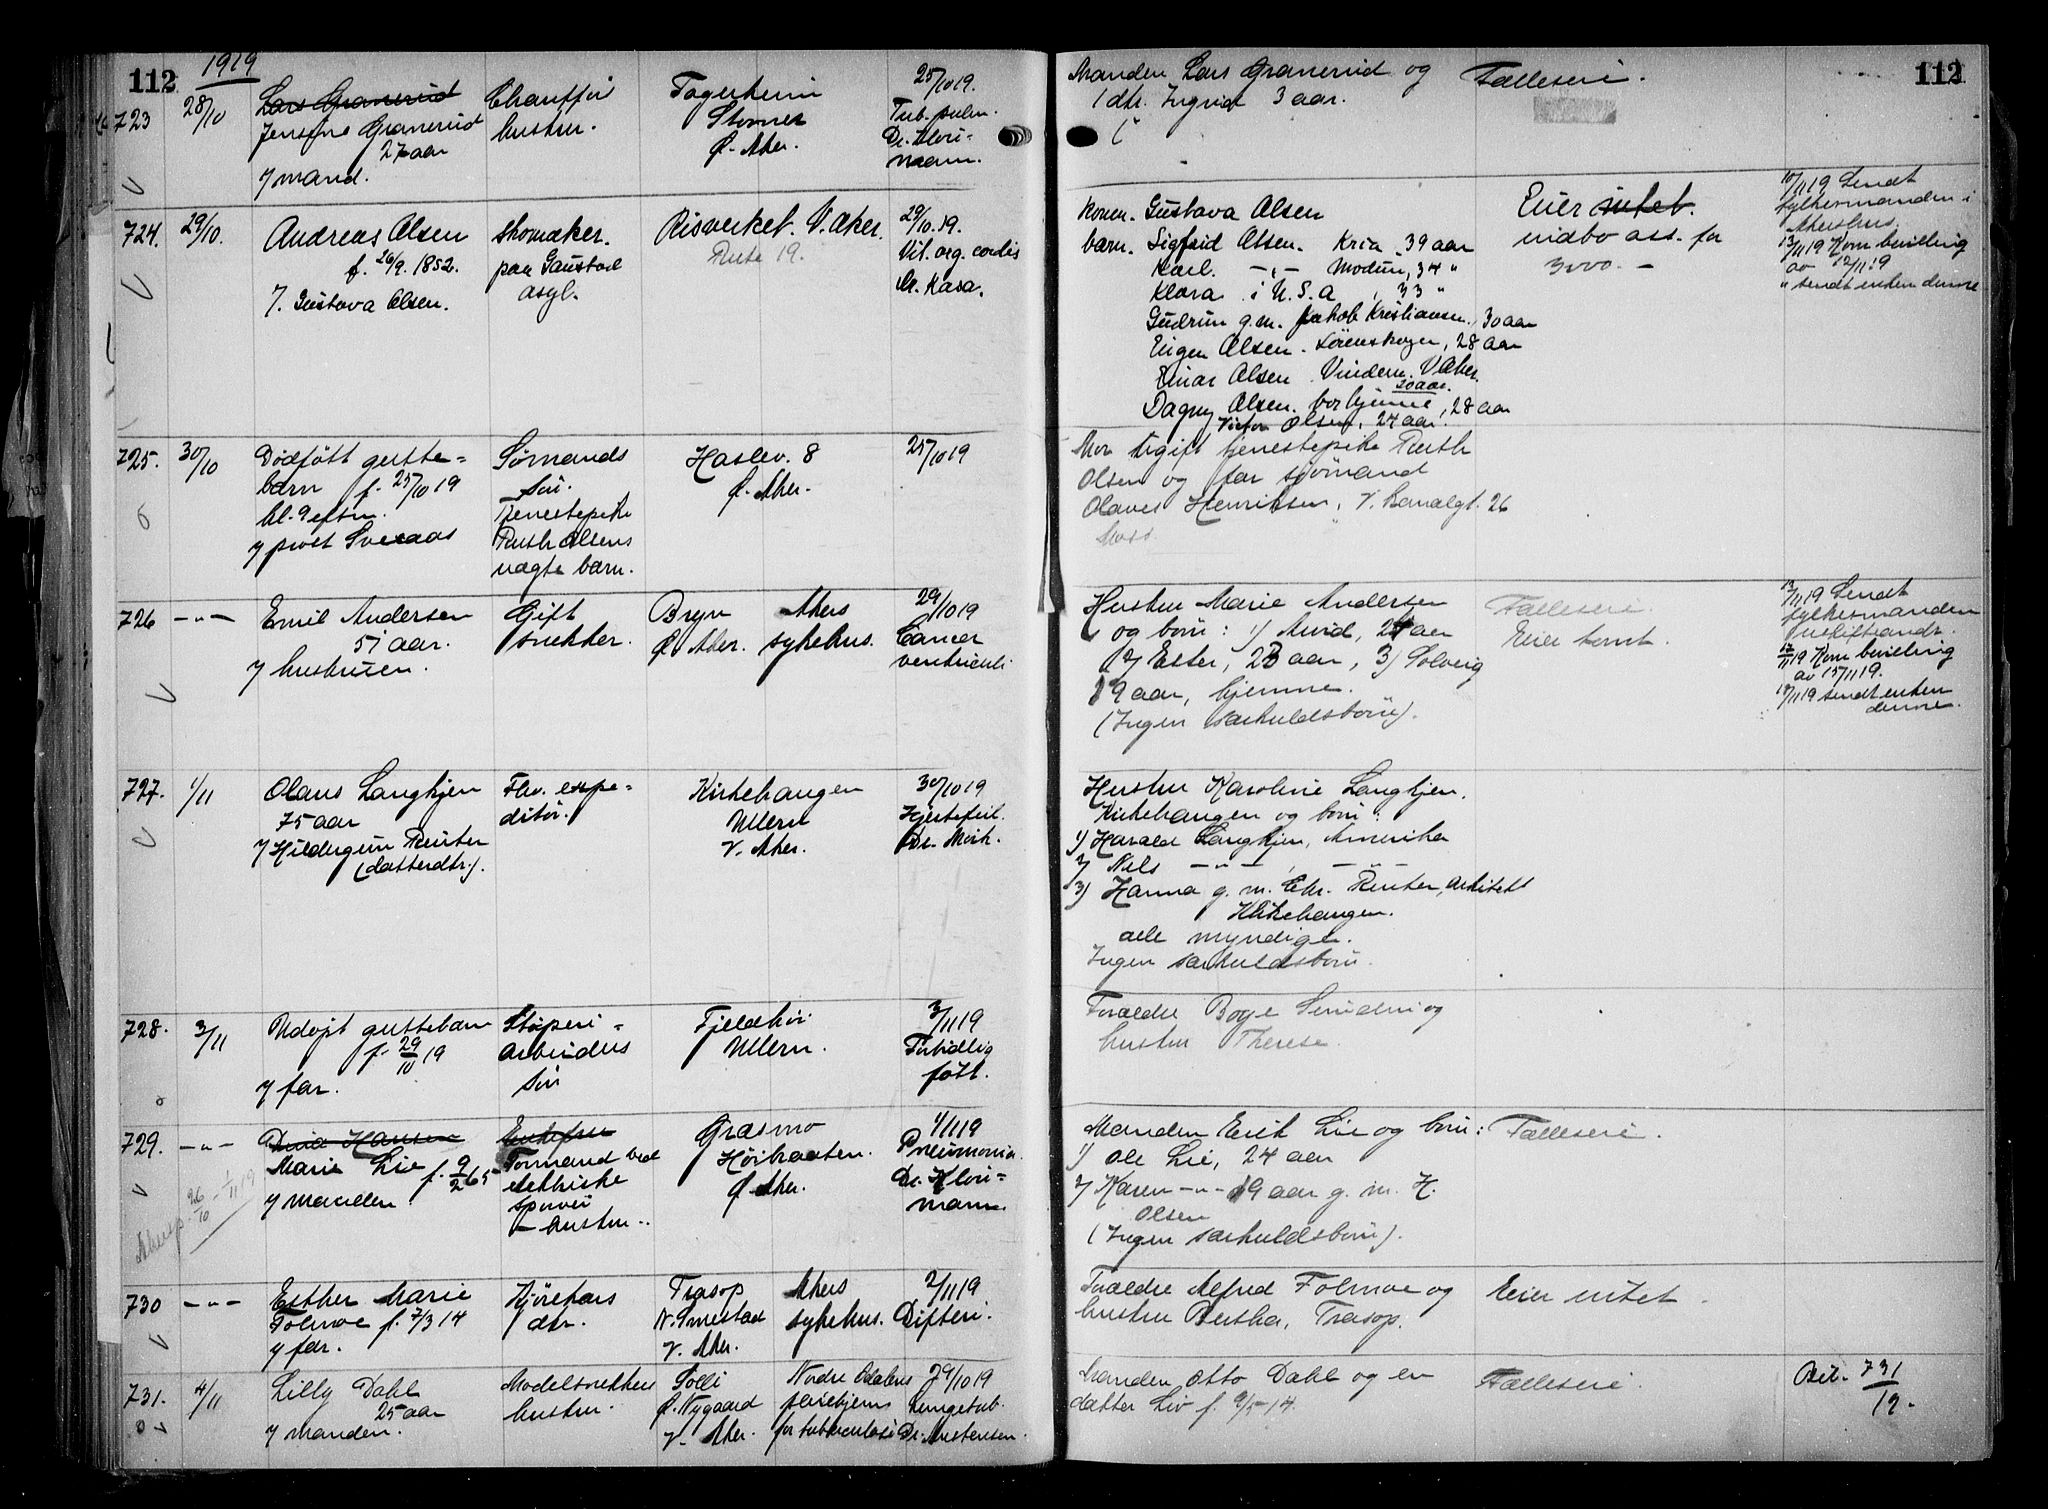 112
1919
723
28/10
Lars Granerud
Jensine Granerud
27 aar
7 mand.
Chauffør
hustru.
Fagerheim
Stovner
Ø. Aker.
25/10 19.
Tub. pulm.
Dr. Klou-
mann.
724.
29/10.
Andreas Olsen
f. 26/9. 1852.
7. Gustava Olsen.
Skomaker.
paa Gaustad
asyl.
Risverket. V. Aker.
Rute 19.
29/10. 19.
Vit. org. cordis
Dr. Kasa.
725.
30/10
Dødfødt gutte-
barn f. 25/10 19
kl. 9 eftm.
7 prost Sveraas
Sømands
søn.
Tjenestepike
Ruth Olsens
uægte barn.
Haslev. 8
Ø. Aker.
25/10 19
726
-"-
Emil Andersen
51 aar.
7 hustruen.
Gift
snekker.
Bryn
Ø. Aker.
Akers
sykehus.
29/10 19
Cancer
ventriculi.
727.
1/11
Olaus Langkjen
75 aar
7 Hildegun Reuter
(datterdtr.).
Fhv. expe-
ditør.
Kirkehaugen
Ullern
V. Aker.
30/10 19
Hjertefeil.
Dr. Mörk.
728.
3/11
Udøpt guttebarn
f. 29/10 19
7 far.
Støperi-
arbeiders
søn
Fjeldhøi
Ullern.
3/11 19
Fortidlig
født.
729.
-"-
Dina Hansen
Marie Lie f. 9/2 65
7 manden
Akersp. 26/10 - 1/11 19
Enkefru
Formand ved
elektriske
sporvei
- hustru -.
Græsmo
Høibraaten.
Ø. Aker.
1/11 19
Pneumonia.
Dr. Klou-
mann.
730
-"-
Esther Marie
Folmoe f. 7/3 14
7 far.
Kjørekars
dtr.
Trasop
N. Smestad
V. Aker.
Akers
sykehus.
2/11 19
Difteri.
731.
4/11
Lilly Dahl
25 aar
7 manden.
Modelsnekkers
hustru.
Solli
Ø. Nygaard
V. Aker.
Nodre Odalens
pleiehjem
for tuberculøse
29/10 19
Lungetub.
Dr. Mustensen.
112
Manden Lars Granerud og
1 dtr. Ingrid 3 aar.
Fælleseie.
Konen. Gustava Olsen
barn. Sigfrid Olsen. Kria 39 aar
Karl. -"- Modum, 34 "
Klara i U.S.A, 33 "
Gudrun g.m. Jakob Kristiansen, 30 aar
Eugen Olsen. Lörenskogen, 28 aar
Einar Olsen. Vindern. V. Aker.
30 aar.
Dagny Olsen. bor hjemme, 28 aar
Victor Olsen, 24 aar.
Eier intet.
indbo ass. for
3000.-
10/11 19 Sendt
fylkesmanden i
Akershus.
13/11 19 Kom bevilling
av 12/11 19
" sendt enken denne
Mor ugift tjenestepike Ruth
Olsen og far sjömand
Olaves Henriksen, V. Kanalgt. 26
Moss
Hustru Marie Andersen
og børn: 1) Arvid, 24 aar
2) Ester, 23 aar, 3) Solveig
19 aar, hjemme.
(Ingen særkuldsbørn).
Fælleseie.
Eier tomt.
13/11 19 Sendt
fylkesmanden
uskiftandr.
17/11 19 Kom bevilling
av 15/11 19.
19/11 19 sendt enken
denne.
Hustru Karoline Langkjen.
Kirkehaugen og børn:
1) Harald Langkjen, Amerika
2) Nils -"-, -"-
3) Hanna g. m. Chr. Reuter, arkitekt
Kirkehaugen.
alle myndige.
Ingen særkuldsbørn.
Forældre Boye Sendem og
hustru Therese.
Manden Erik Lie og børn:
1) Ole Lie, 24 aar
2) Karen -"- 19 aar g. m. H.
Olsen
(Ingen særkuldsbørn).
Fælleseie.
Forældre Alfred Folmoe og
hustru Bertha, Trasop.
Eier intet.
Manden Otto Dahl og en
datter Liv f. 9/5-14.
Fælleseie.
Bil. 731/19.